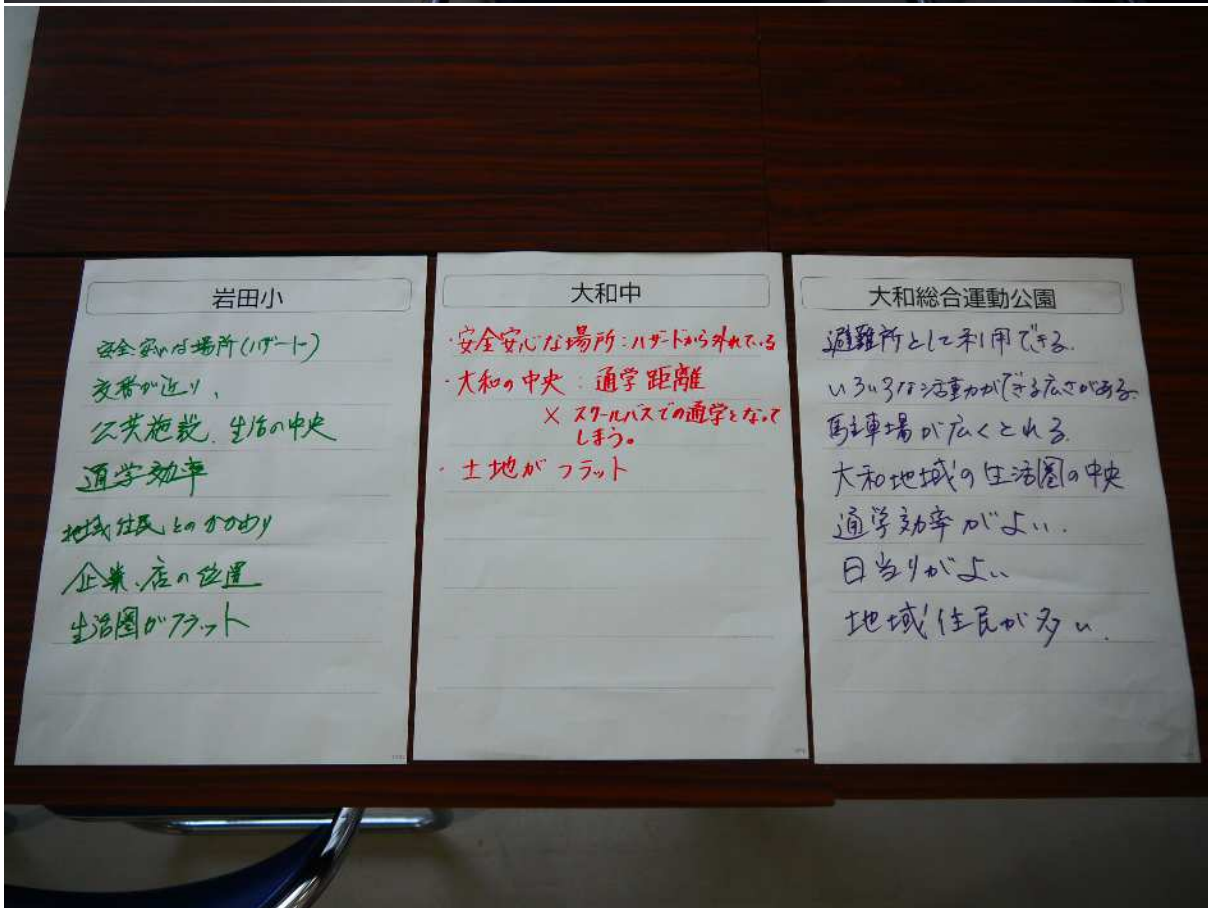 岩田小
安全安心な場所(ハザード)
交番が近い、
公共施設、生活の中央
通学効率
地域住民とのかかわり
企業、店の位置
生活圏がフラット
大和中
・安全安心な場所:ハザードから外れている
・大和の中央:通学距離
× スクールバスでの通学となって
しまう。
・土地がフラット
大和総合運動公園
避難所として利用できる。
いろいろな活動ができる広さがある。
駐車場が広くとれる。
大和地域の生活圏の中央
通学効率がよい。
日当りがよい
地域住民が多い。